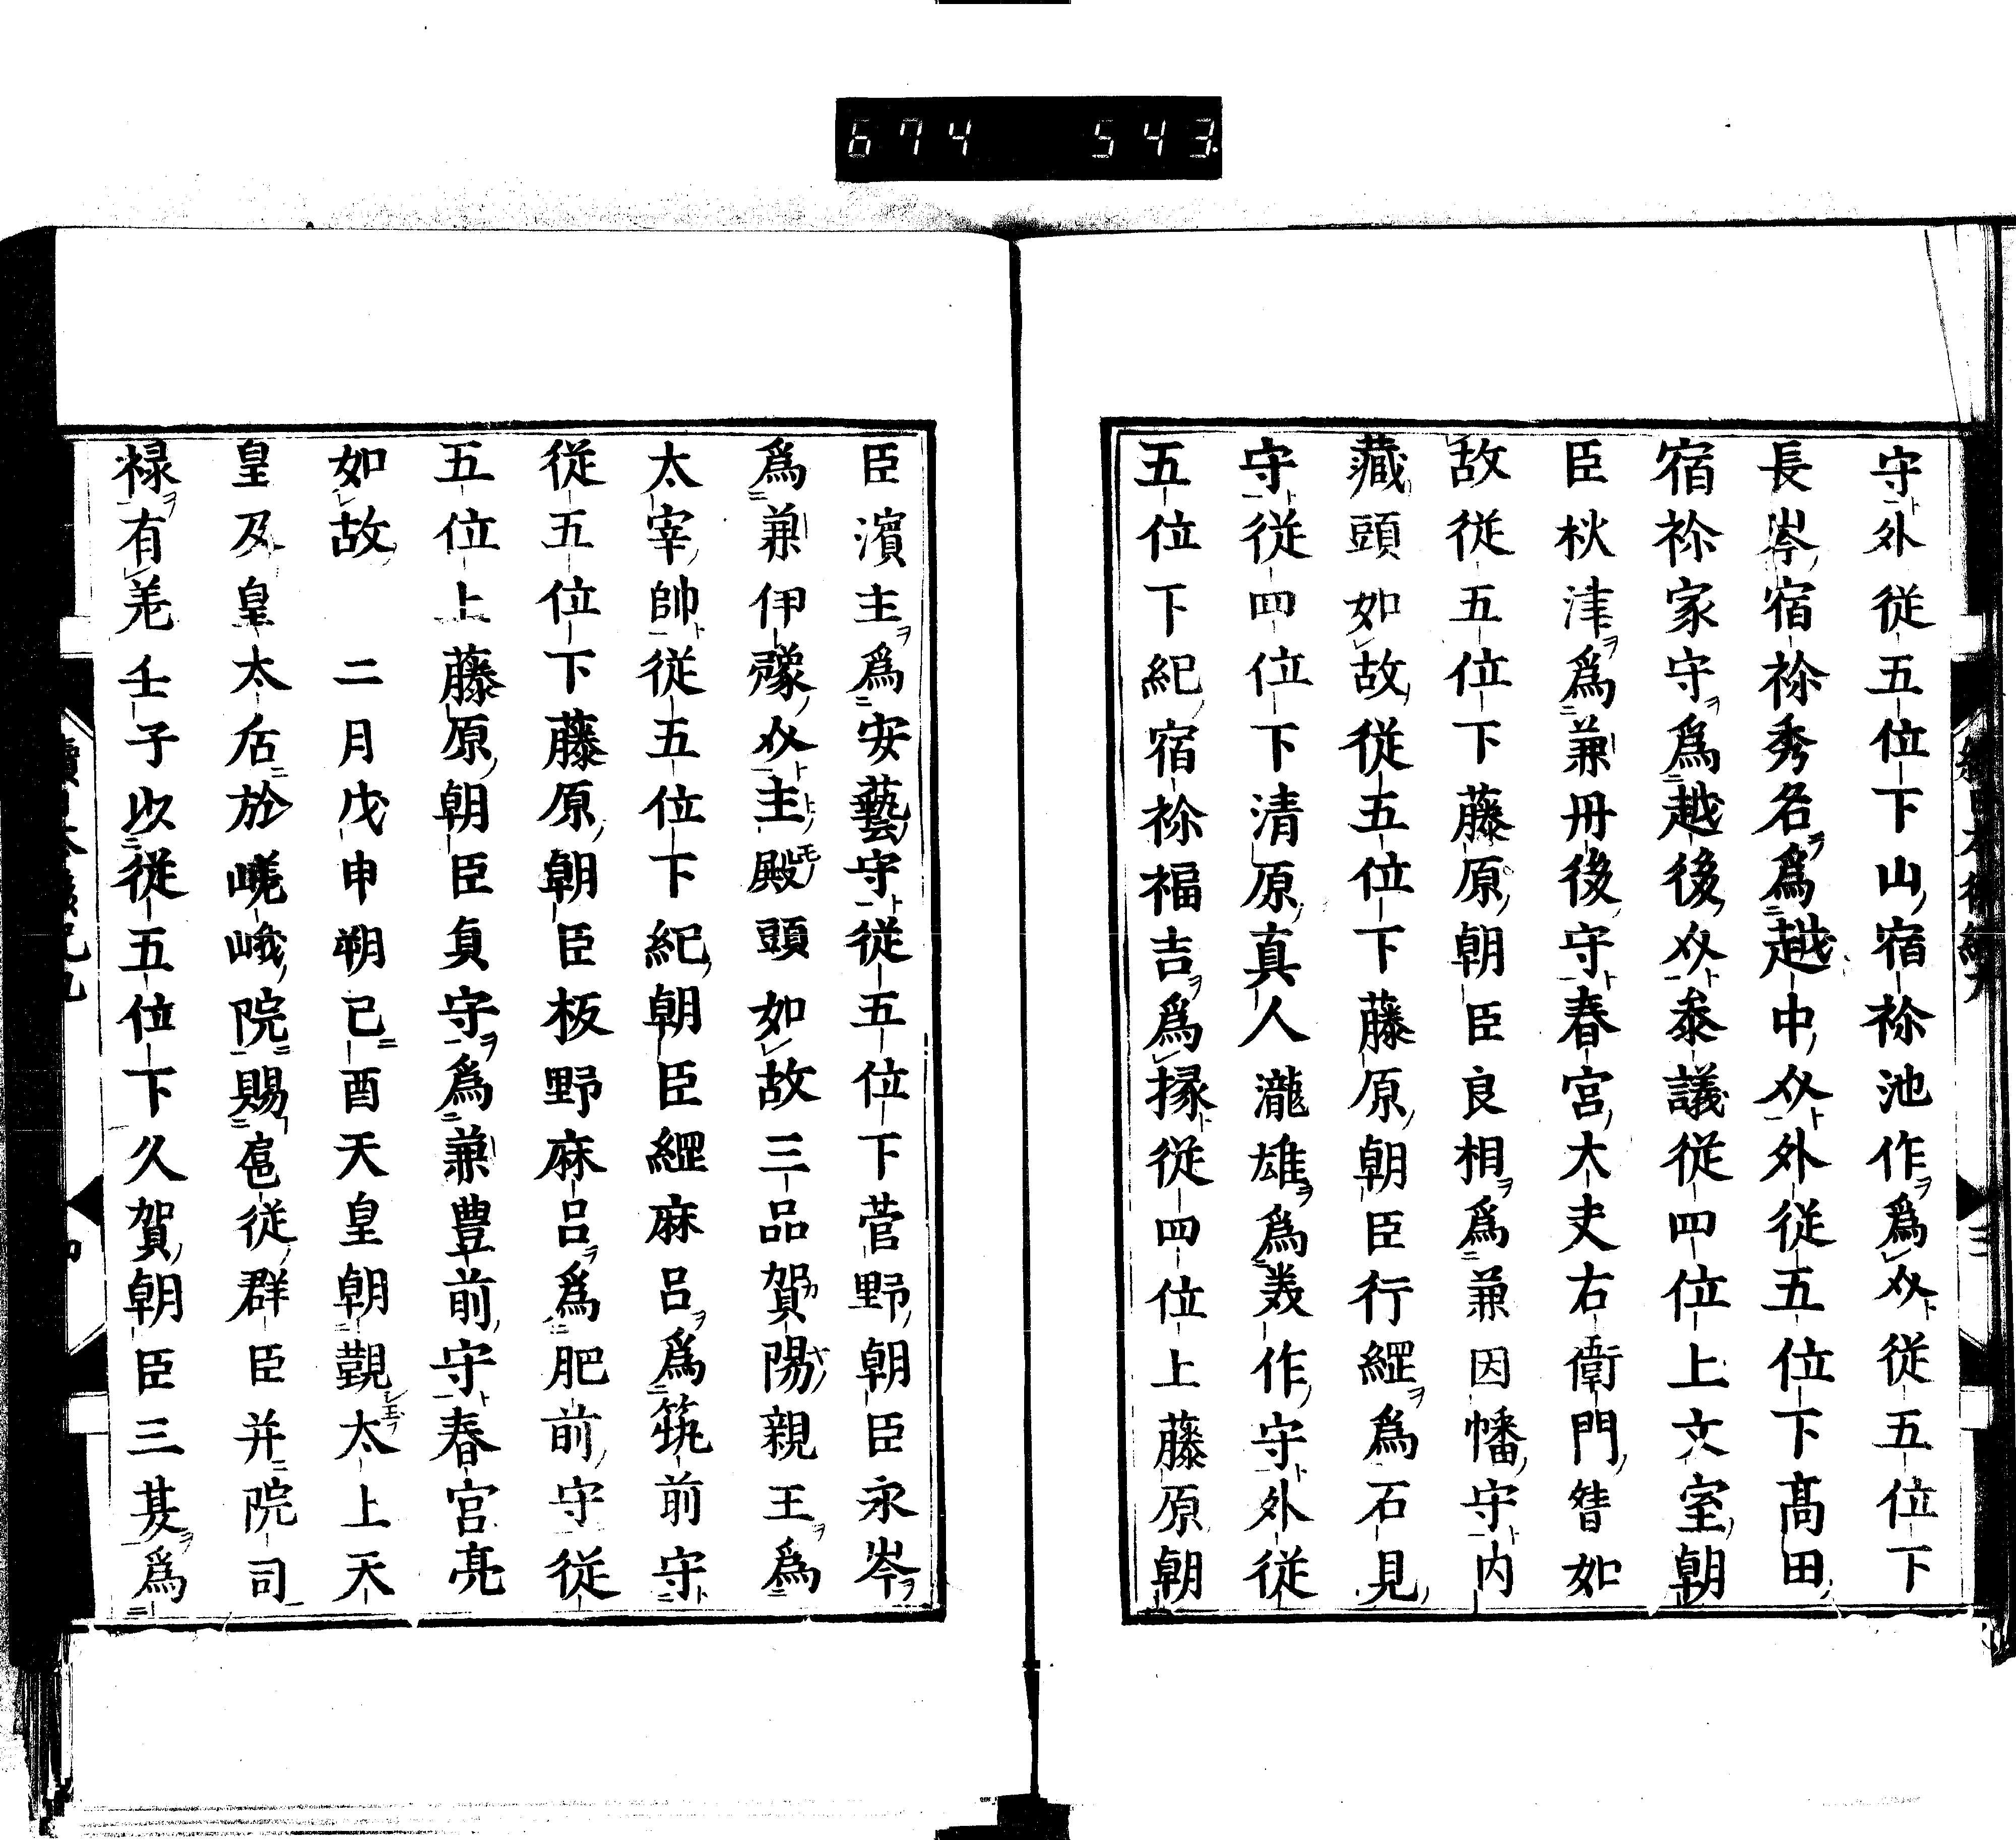 674 543
守外従五位下山宿祢池作爲介従五位下
長岑宿祢秀名爲越中介外従五位下髙田
宿祢家守爲越後介叅議従四位上文室朝
臣秋津爲兼丹後守春宮大夫右衛門督如
故従五位下藤原朝臣良相爲兼因幡守内
藏頭如故従五位下藤原朝臣行經爲石見
守従四位下清原真人瀧雄爲美作守外従
五位下紀宿祢福吉爲掾従四位上藤原朝
臣濱主爲安藝守従五位下菅野朝臣永岑
爲兼伊豫介主殿頭如故三品賀陽親王爲
太宰帥従五位下紀朝臣經麻呂爲筑前守
従五位下藤原朝臣板野麻呂爲肥前守従
五位上藤原朝臣貞守爲兼豊前守春宮亮
如故　二月戊申朔己酉天皇朝覲太上天
皇及皇太后於嵯峨院賜扈従群臣并院司
禄有差壬子以従五位下久賀朝臣三夏爲